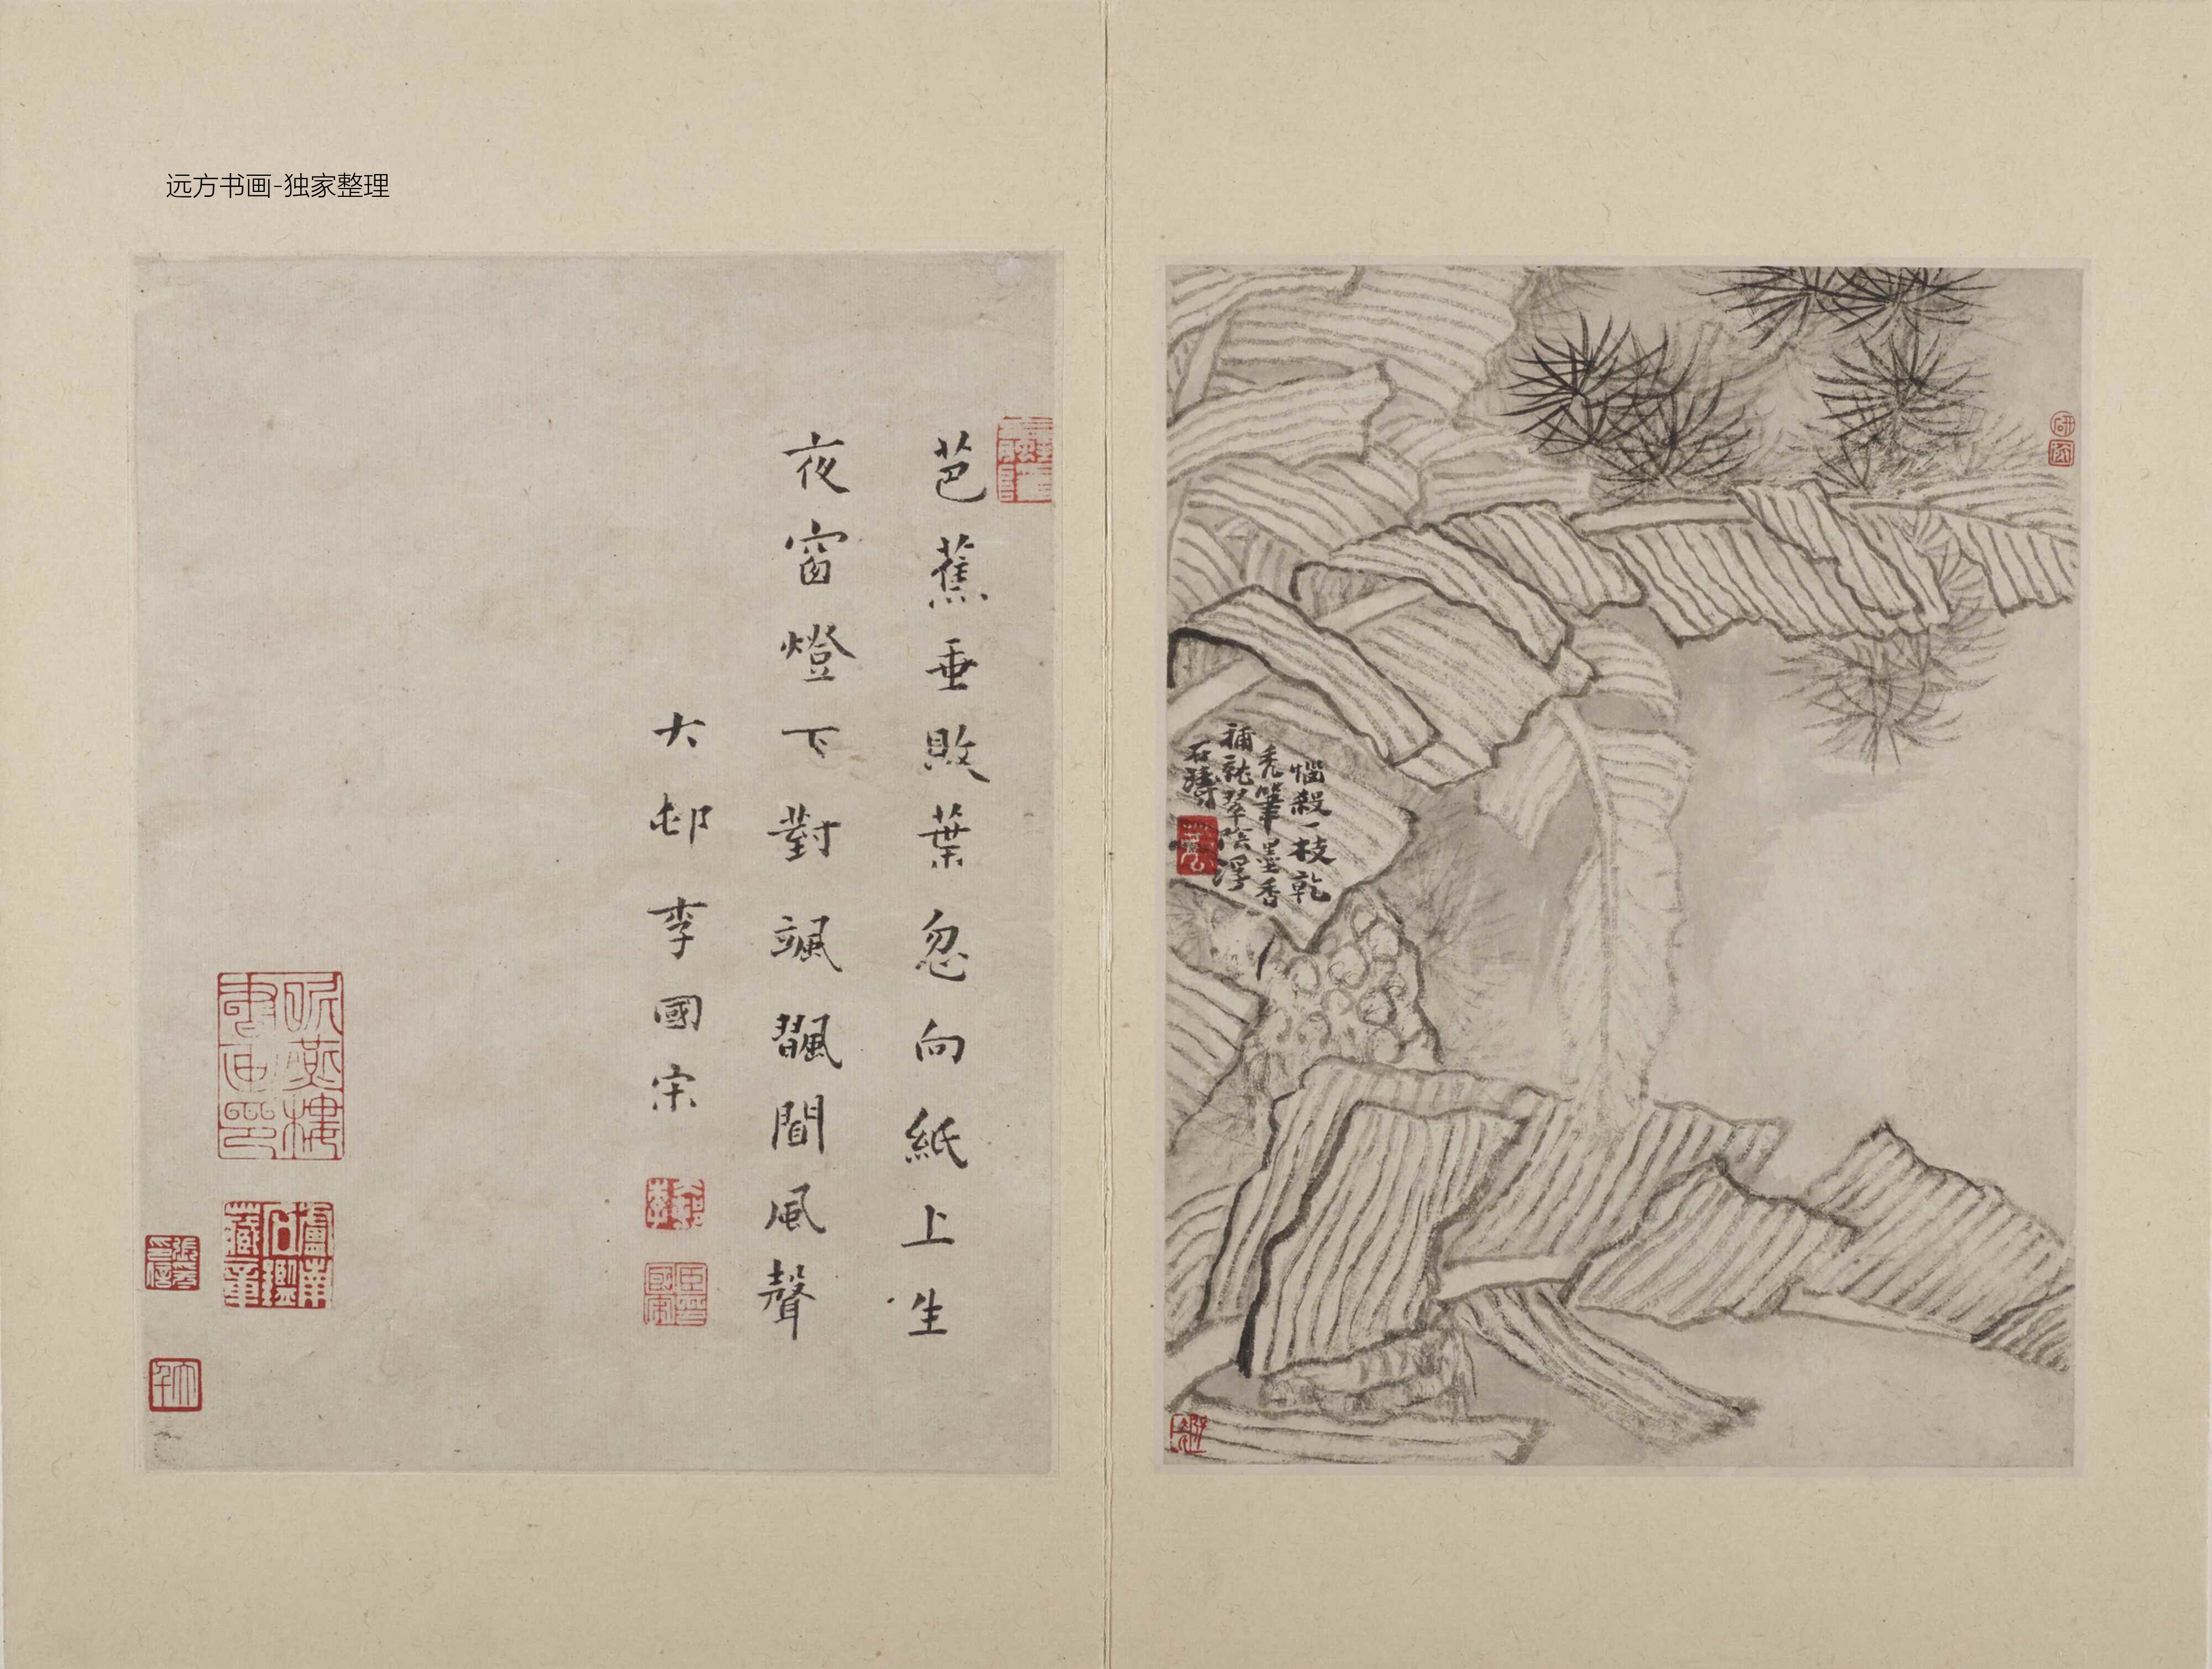 远方书画-独家整理
惱殺一枝乾
禿筆墨香
補就翠陰浮
石濤
芭蕉垂敗葉忽向紙上生
夜窗燈下對颯飁聞風聲
大邨李國宋